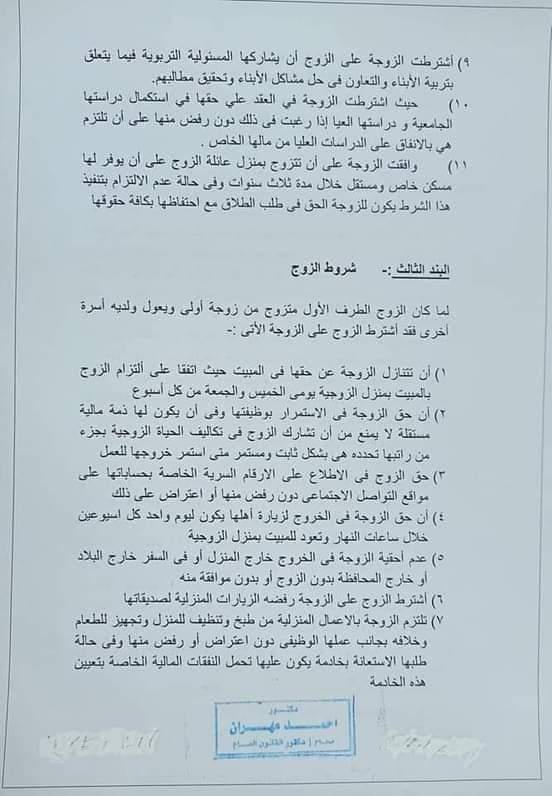 ٩) أشترطت الزوجة على الزوج أن يشاركها المسئولية التربوية فيما يتعلق
بتربية الأبناء والتعاون فى حل مشاكل الأبناء وتحقيق مطالبهم.
١٠) حيث اشترطت الزوجة في العقد علي حقها في استكمال دراستها
الجامعية و دراستها العيا إذا رغبت فى ذلك دون رفض منها على أن تلتزم
هي بالانفاق على الدراسات العليا من مالها الخاص .
١١) وافقت الزوجة على أن تتزوج بمنزل عائلة الزوج على أن يوفر لها
مسكن خاص ومستقل خلال مدة ثلاث سنوات وفى حالة عدم الالتزام بتنفيذ
هذا الشرط يكون للزوجة الحق فى طلب الطلاق مع احتفاظها بكافة حقوقها
البند الثالث :- شروط الزوج
لما كان الزوج الطرف الأول متزوج من زوجة أولى ويعول ولديه أسرة
أخرى فقد أشترط الزوج على الزوجة الأتى :-
١) أن تتنازل الزوجة عن حقها فى المبيت حيث اتفقا على ألتزام الزوج
بالمبيت بمنزل الزوجية يومى الخميس والجمعة من كل أسبوع
٢) أن حق الزوجة فى الاستمرار بوظيفتها وفى أن يكون لها ذمة مالية
مستقلة لا يمنع من أن تشارك الزوج فى تكاليف الحياة الزوجية بجزء
من راتبها تحدده هى بشكل ثابت ومستمر متى استمر خروجها للعمل
٣) حق الزوج فى الاطلاع على الارقام السرية الخاصة بحساباتها على
مواقع التواصل الاجتماعى دون رفض منها أو اعتراض على ذلك
٤) أن حق الزوجة فى الخروج لزيارة أهلها يكون ليوم واحد كل اسيوعين
خلال ساعات النهار وتعود للمبيت بمنزل الزوجية
٥) عدم أحقية الزوجة فى الخروج خارج المنزل أو فى السفر خارج البلاد
أو خارج المحافظة بدون الزوج أو بدون موافقة منه
٦) أشترط الزوج على الزوجة رفضه الزيارات المنزلية لصديقاتها
٧) تلتزم الزوجة بالاعمال المنزلية من طبخ وتنظيف للمنزل وتجهيز للطعام
وخلافه بجانب عملها الوظيفى دون اعتراض أو رفض منها وفى حالة
طلبها الاستعانة بخادمة يكون عليها تحمل النفقات المالية الخاصة بتعيين
هذه الخادمة
دكتور
احمد مهران
محام / دكتور القانون العام